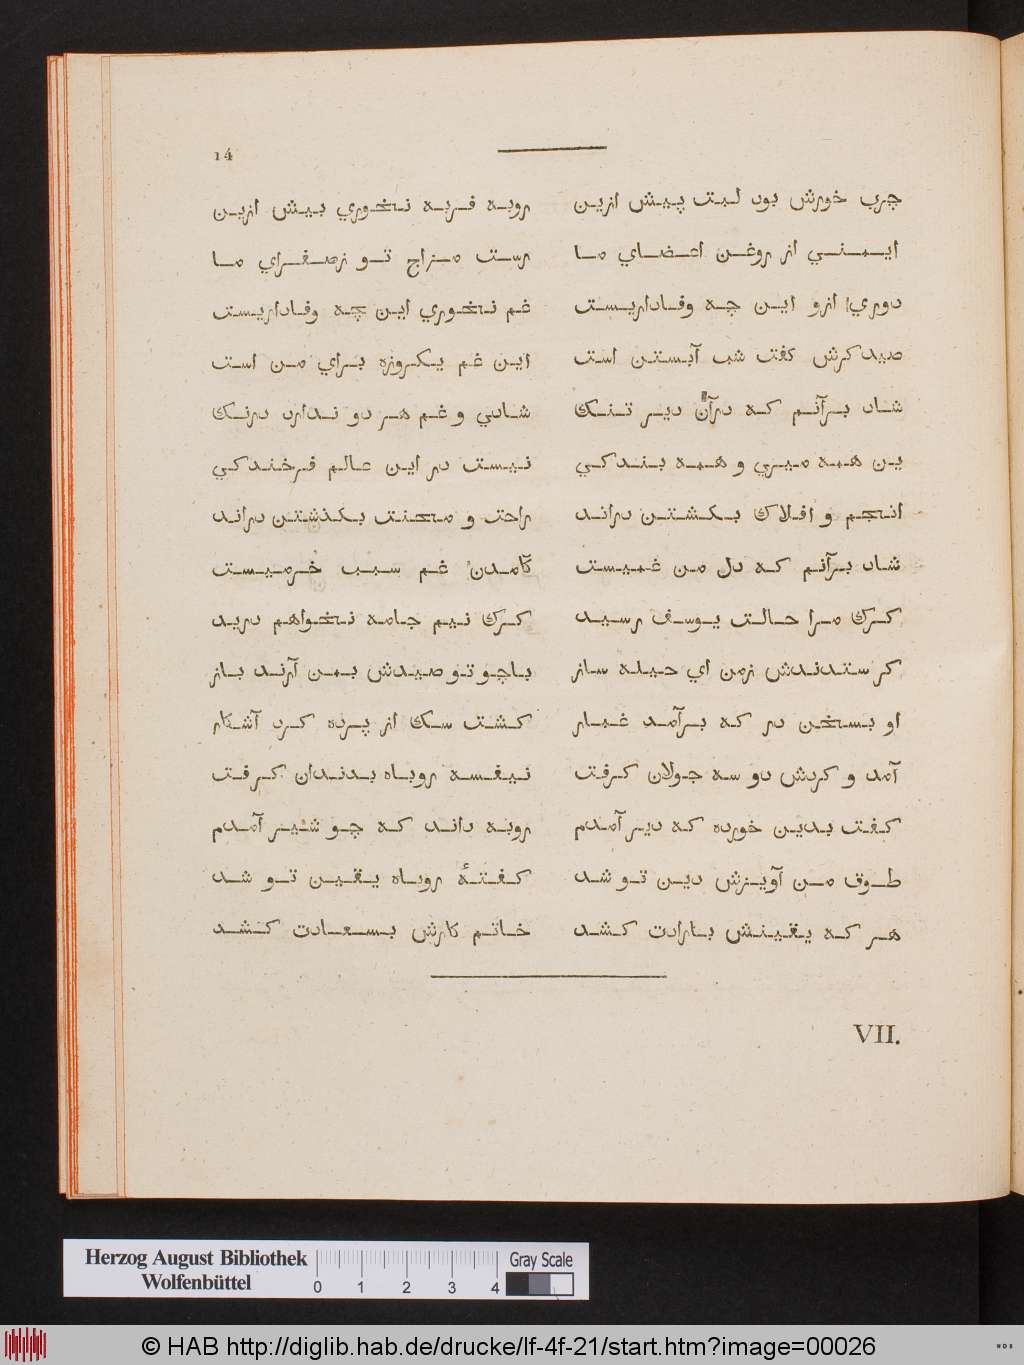 14
چرب خورش بود لبت پیش ازین روبه فربه نخوري بیش ازین
ایمني از روغن اعضاي ما رست مزاج تو زصفراي ما
دوري ازو این چه وفاداریست غم نخوري این چه وفاداریست
صیدکرش کفت شب آبستن است این غم یکروزه براي من است
شاد برآنم که درآن دیر تنک شادي و غم هر دو ندارد درنک
ین همه میري و همه بندکي نیست در این عالم فرخندکي
انجم و افلاک بکشتن دراند راحت و محنت بکذشتن دراند
شاد برآنم که دل من غمیست کامدن غم سبب خرمیست
کرک مرا حالت یوسف رسید کرک نیم جامه نخواهم درید
کر ستدندش زمن اي حیله ساز باچو تو صیدش بمن آرند باز
او بسخن در که برآمد غبار کشت سک از پرده کرد آشکار
آمد و کردش دو سه جولان کرفت نیفسه روباه بدندان کرفت
کفت بدین خورده که دیر آمدم روبه داند که چو شیر آمدم
طوق من آویزش دین تو شد کفتهٔ روباه یقین تو شد
هر که یقینش بارادت کشد خاتم کارش بسعادت کشد
VII.
Herzog August Bibliothek
Wolfenbüttel
0 1 2 3 4
Gray Scale
© HAB http://diglib.hab.de/drucke/lf-4f-21/start.htm?image=00026